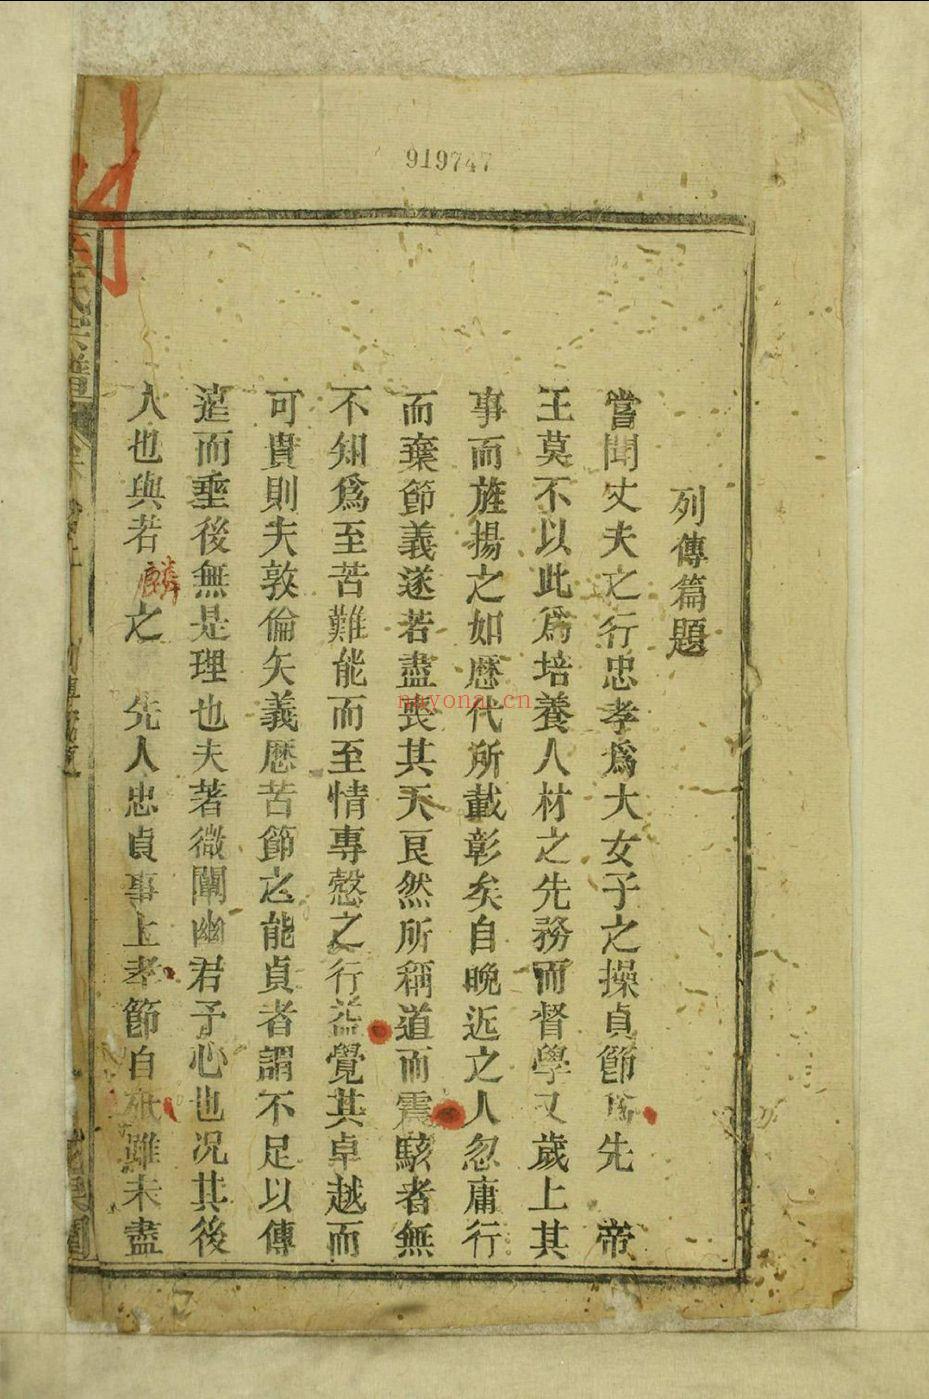 919747
列傳篇題
嘗聞丈夫之行忠孝爲大女子之操貞節爲先　帝
王莫不以此爲培養人材之先務而督學又歲上其
事而旌揚之如歷代所載彰矣自晚近之人忽庸行
而棄節義遂若盡喪其天良然所稱道而震駭者無
不知爲至苦難能而至情專慤之行益覺其卓越而
可貴則夫敦倫矢義歷苦節之能貞者謂不足以傳
遠而垂後無是理也夫著微闡幽君子心也况其後
人也與若麟之　先人忠貞事上孝節自矢雖未盡
氏宗譜
nayonai.cn